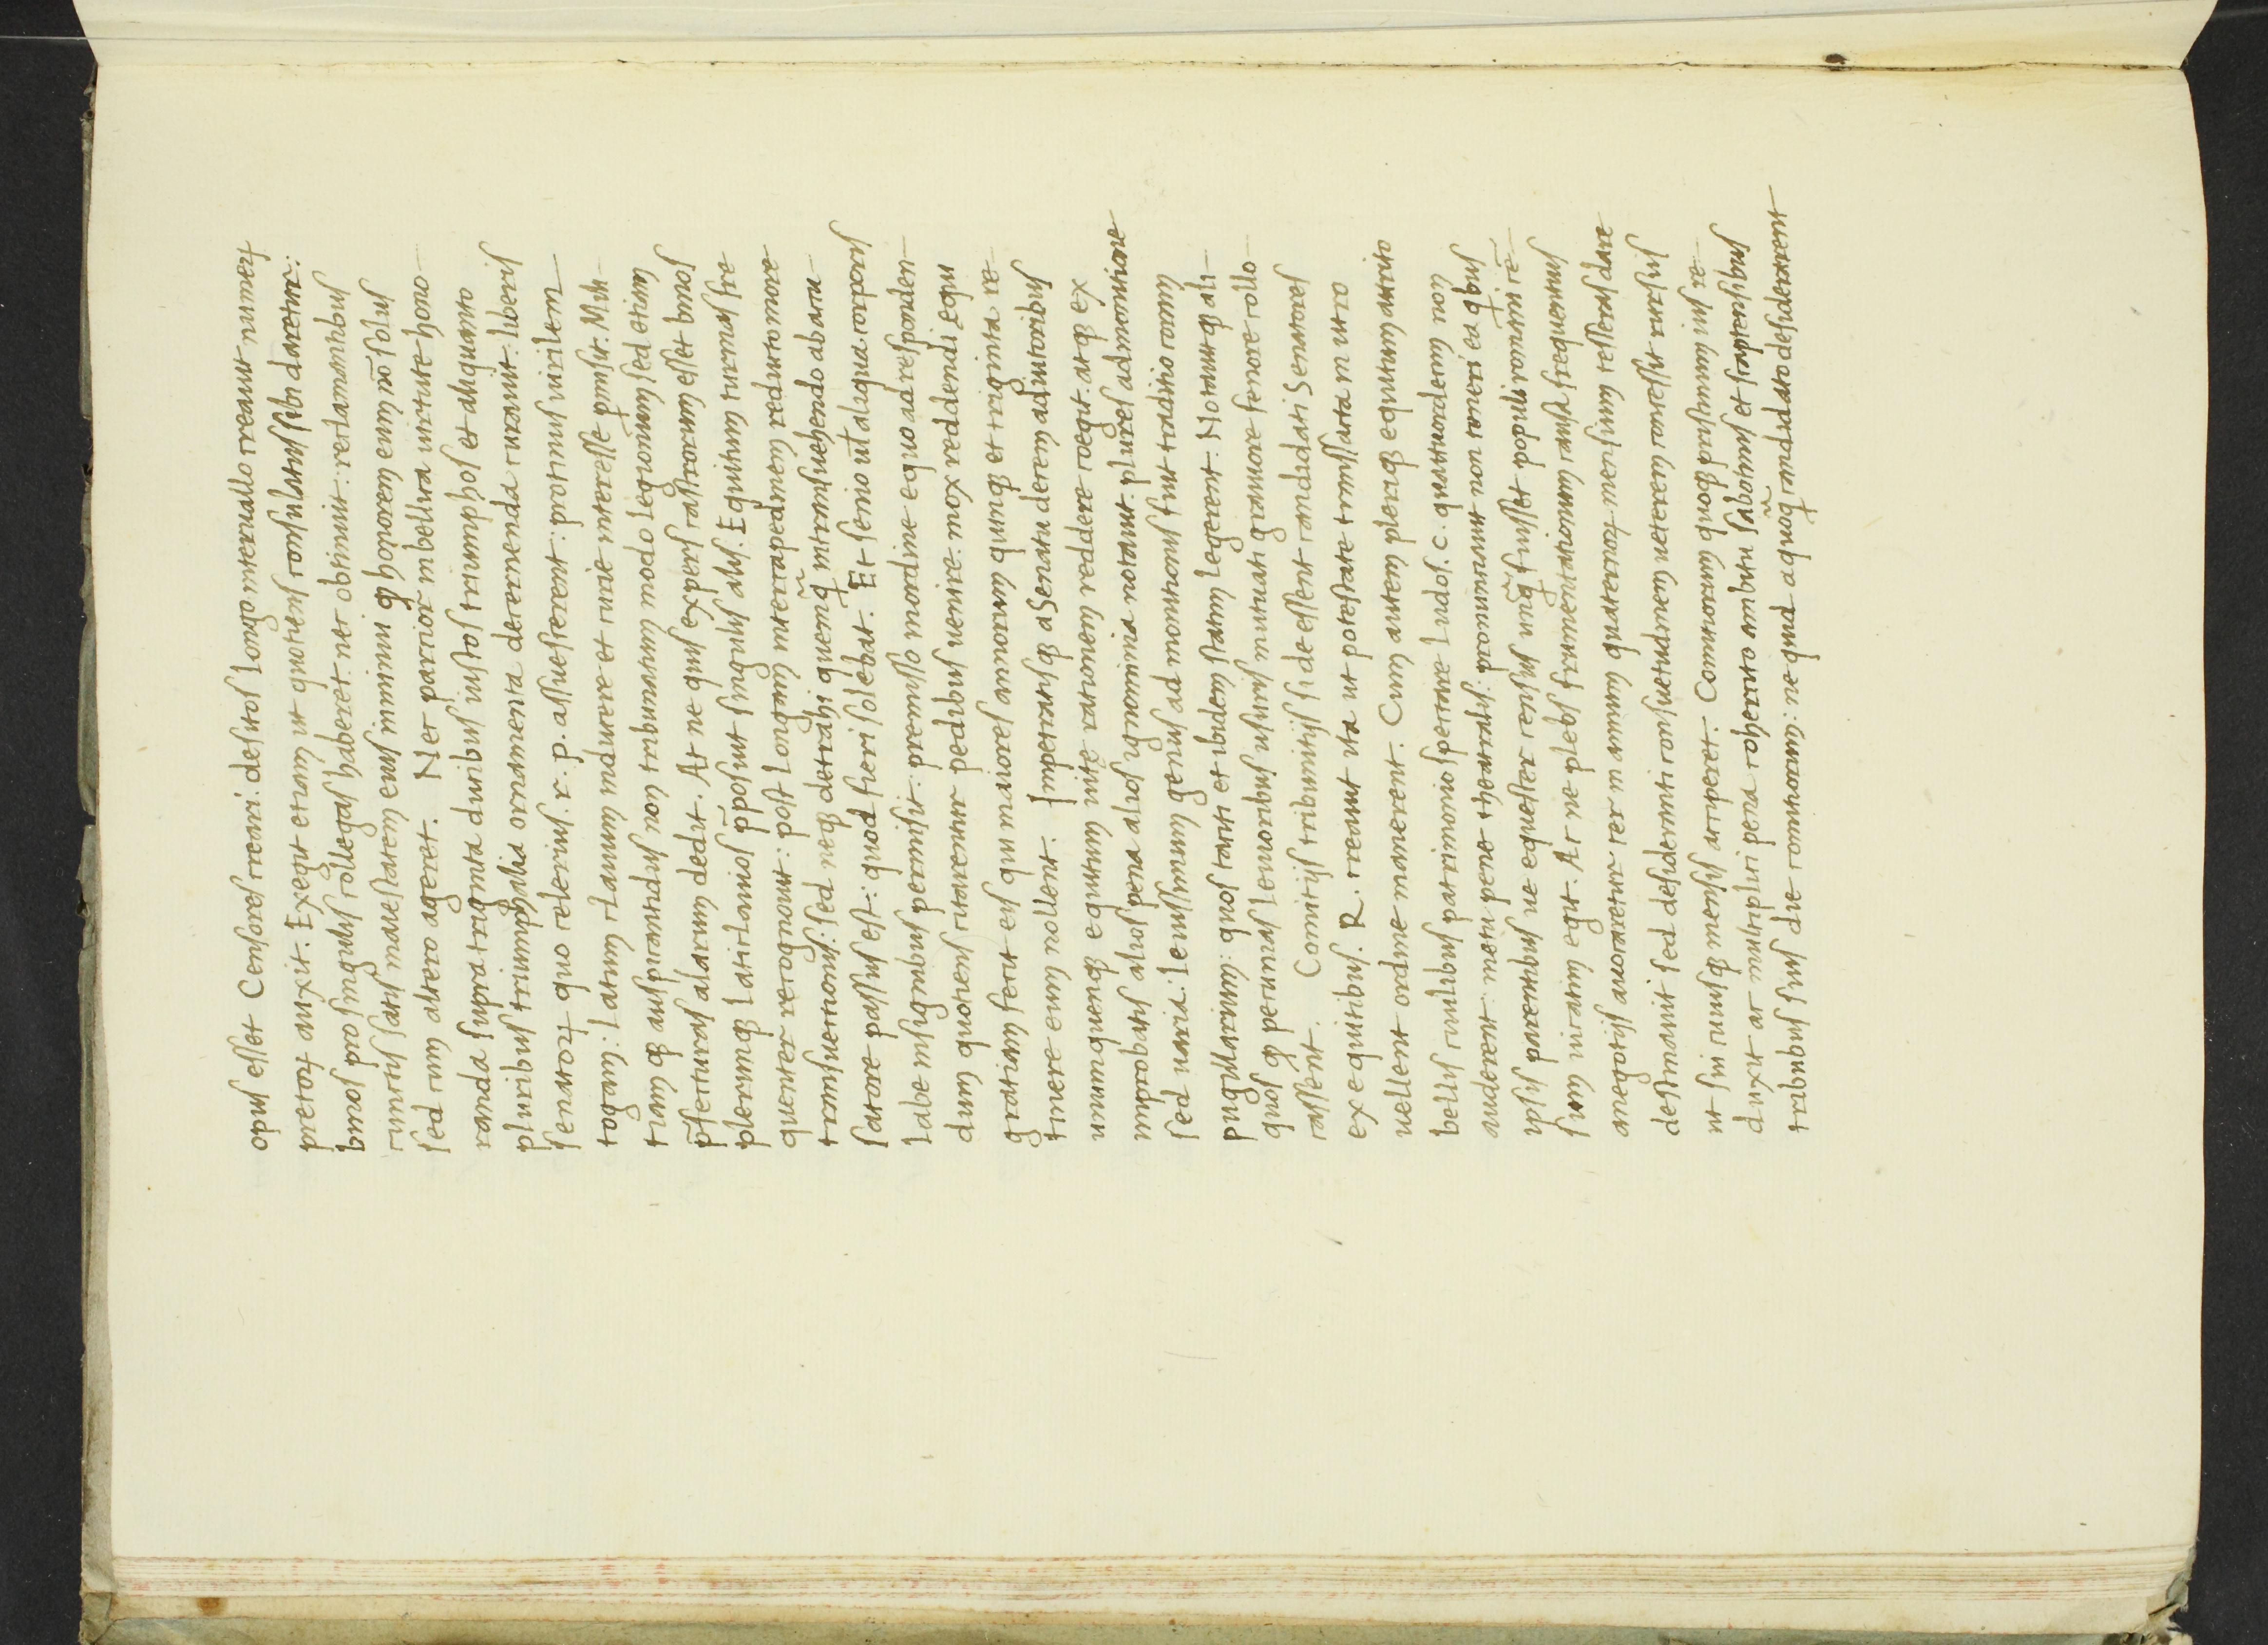 opus esset Censores creari. desitos longo interuallo creauit numeꝝ
pretoꝝ auxit. Exegit etiam ut quotiens consulatus sibi daretur:
binos pro singulis collegas haberet. nec obtinuit: reclamantibus
cunctis satis maiestatem eius inminui ꝙ honorem eum nō solus
sed cum altero ageret. Nec parcior̄ in bellica uirtute hono-
randa supra triginta ducibus iustos triumphos et aliquanto
pluribus triumphalia ornamenta decernenda curauit: liberis
senatoꝝ quo celerius. r. p. assuescerent: protinus uirilem
togam: latum clauum inducere et curie interesse ꝑmisit. Mili-
tiam ꝙ auspicantibus non tribunatum modo legionum sed etiam
p̄fecturas alarum dedit. Ac ne quis expers castrorum esset binos
plerumqꝫ laticlauios p̄posuit singulis alis. Equitum turmas fre
quenter recognouit: post longam intercapedinem reducto more
transuectionis: sed neqꝫ detrahi quemꝗ̃ in transuehendo ab accu-
satore passus est: quod fieri solebat. Et senio ul̄ aliqua corporis
labe insignibus permisit: premisso in ordine equo ad responden-
dum quotiens citarentur pedibus uenire. mox reddendi equi
gratiam fecit eis qui maiores annorum quinqꝫ et triginta re-
tinere eum nollent. Imperatisqꝫ a Senatu decem adiutoribus
unumquenqꝫ equitum uite rationem reddere coegit. atqꝫ ex
improbatis alios pena alios ignominia notauit. plures admonitione
sed uaria: leuissimum genus admonitionis fuit traditio coram
pugillarium: quos taciti et ibidem statim legerent. Notauitqꝫ ali-
quos ꝙ pecunias leuioribus usuris mutuati grauiore fenore collo-
cassent. Comitijs tribunitijs si deessent candidati Senatores
ex equitibus. R. creauit ita ut potestate transacta in utro
uellent ordine manerent. Cum autem pleriqꝫ equitum attrito
bellis ciuilibus patrimonio spectare ludos. c. quattuordecim non
auderent: metu pene theatralis: pronunciauit non teneri ea qbus
ipsis parentibus ue equester census unꝗ̃ fuisset populi romani re-
sum uicatim egit. Ac ne plebs frumentationum causa frequentius
a negotijs auocaretur ter in annum quaternoꝝ mensium tesseras dare
destinauit sed desideranti consuetudinem ueterem concessit rursus
ut sui cuiusqꝫ mensis acciperet. Comitiorum quoqꝫ pristinum ius re-
duxit ac multiplici pena cohercito ambitu fabianis et scaptensibus
tribubus suis die comitiorum: ne quid a quoꝗ̃ candidato desiderarent